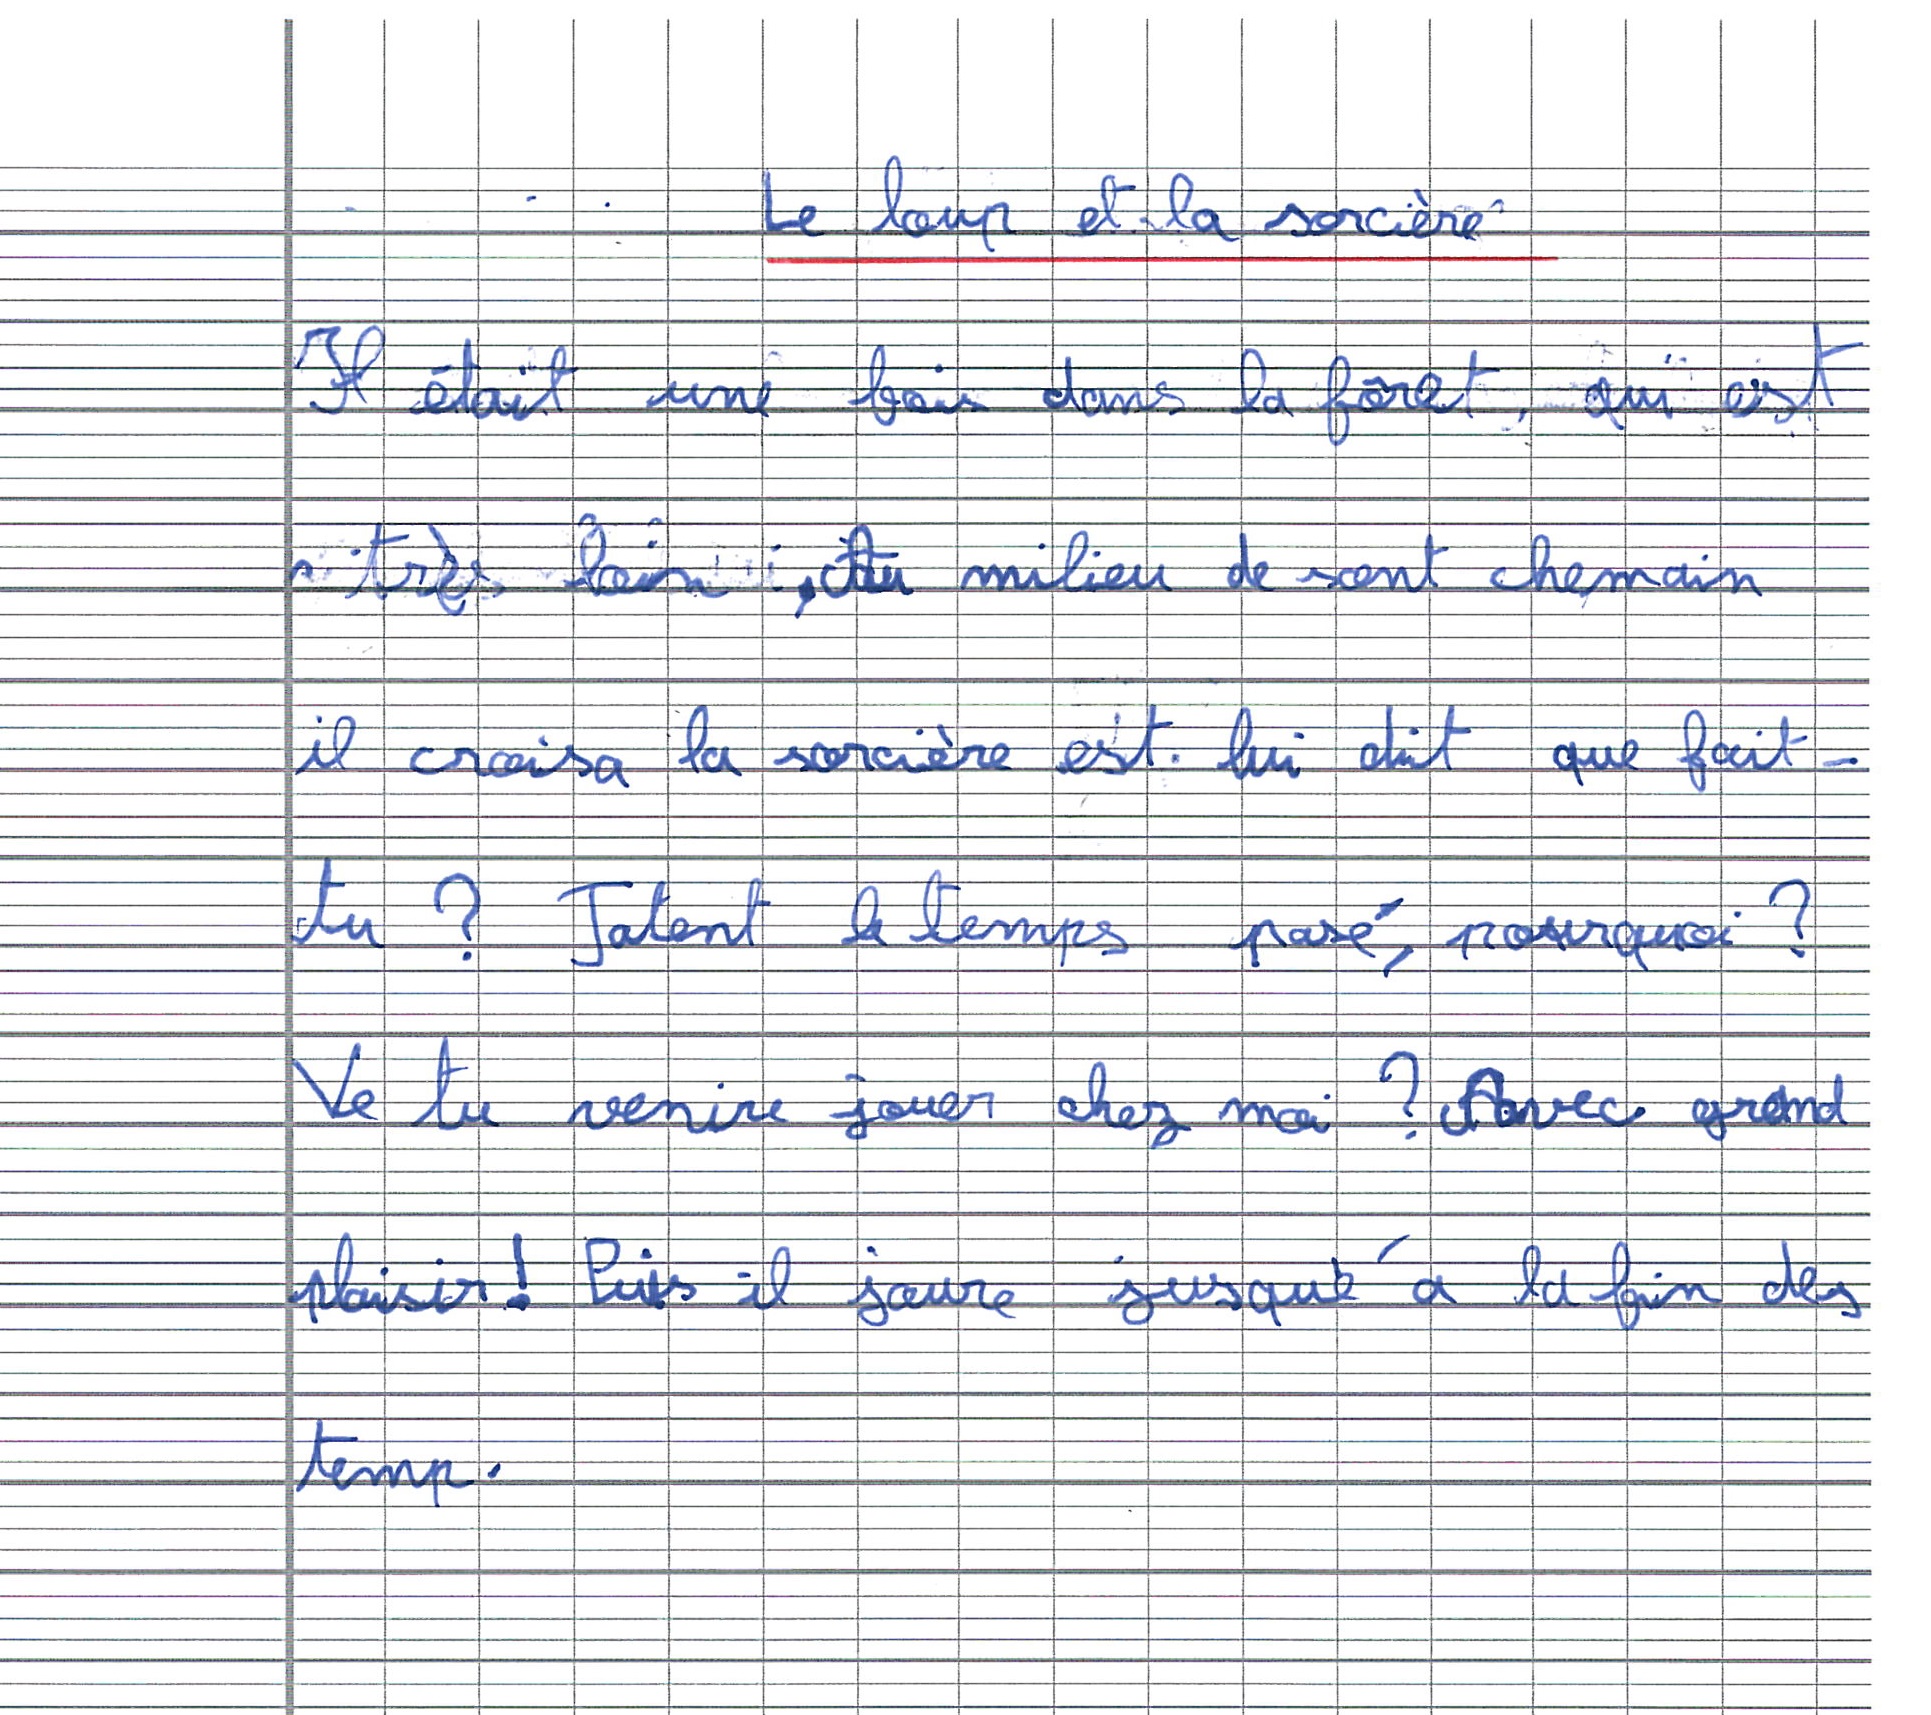 Le loup et la sorcière
Il était une fois dans la fôret, qui est
très loin, Au milieu de sont chemain
il croisa la sorcière est lui dit que fait-
tu ? Jatent le temps pasé, pourquoi ?
Ve tu venire jouer chez moi ? Avec grand
plaisir ! Puis il joure jusqué a la fin des
temp.